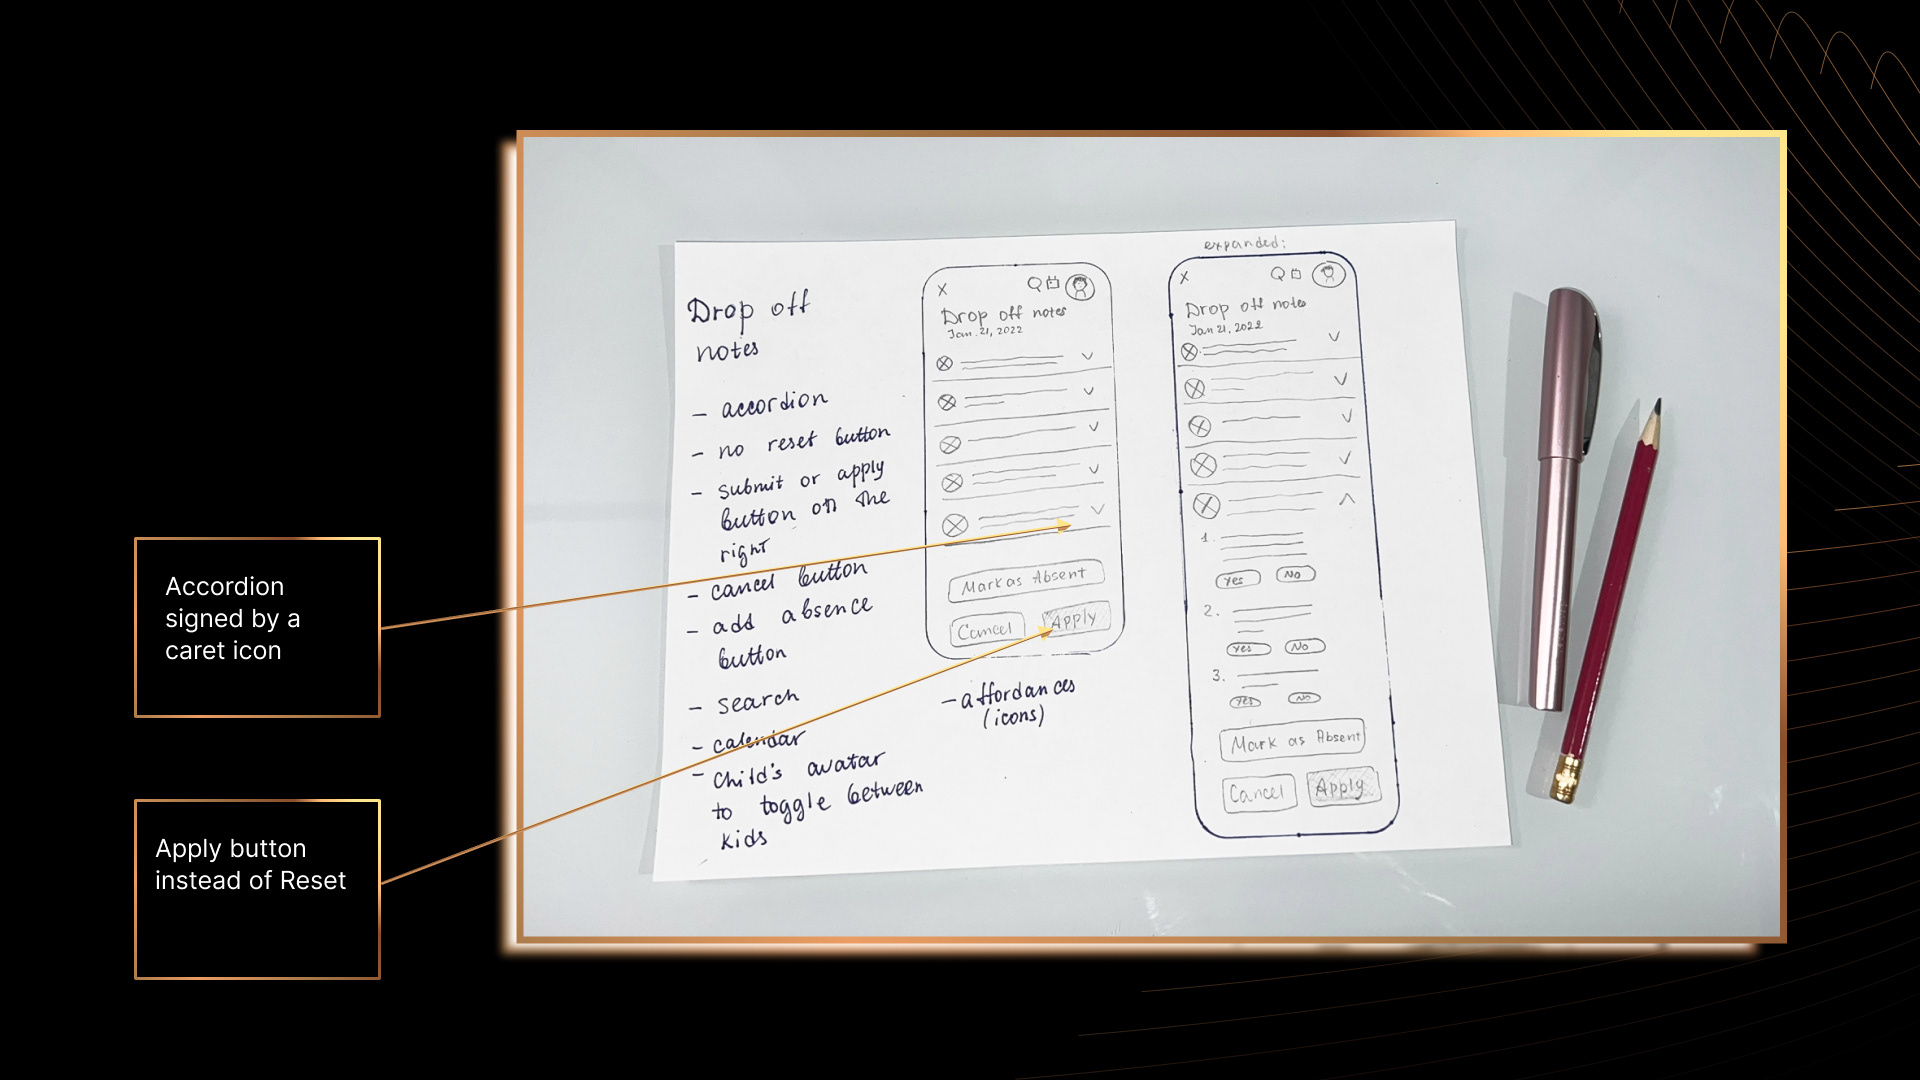 Accordion
signed by a
caret icon
Apply button
instead of Reset
Drop off
notes
- accordion
- no reset button
- submit or apply
button on the
right
- cancel button
- add absence
button
- search
- calendar
- child's avatar
to toggle between
kids
X
Drop off notes
Jan. 21, 2022
Mark as Absent
Cancel
Apply
- affordances
(icons)
expanded:
X
Drop off notes
Jan 21, 2022
1.
Yes
No
2.
Yes
No
3.
Yes
No
Mark as Absent
Cancel
Apply